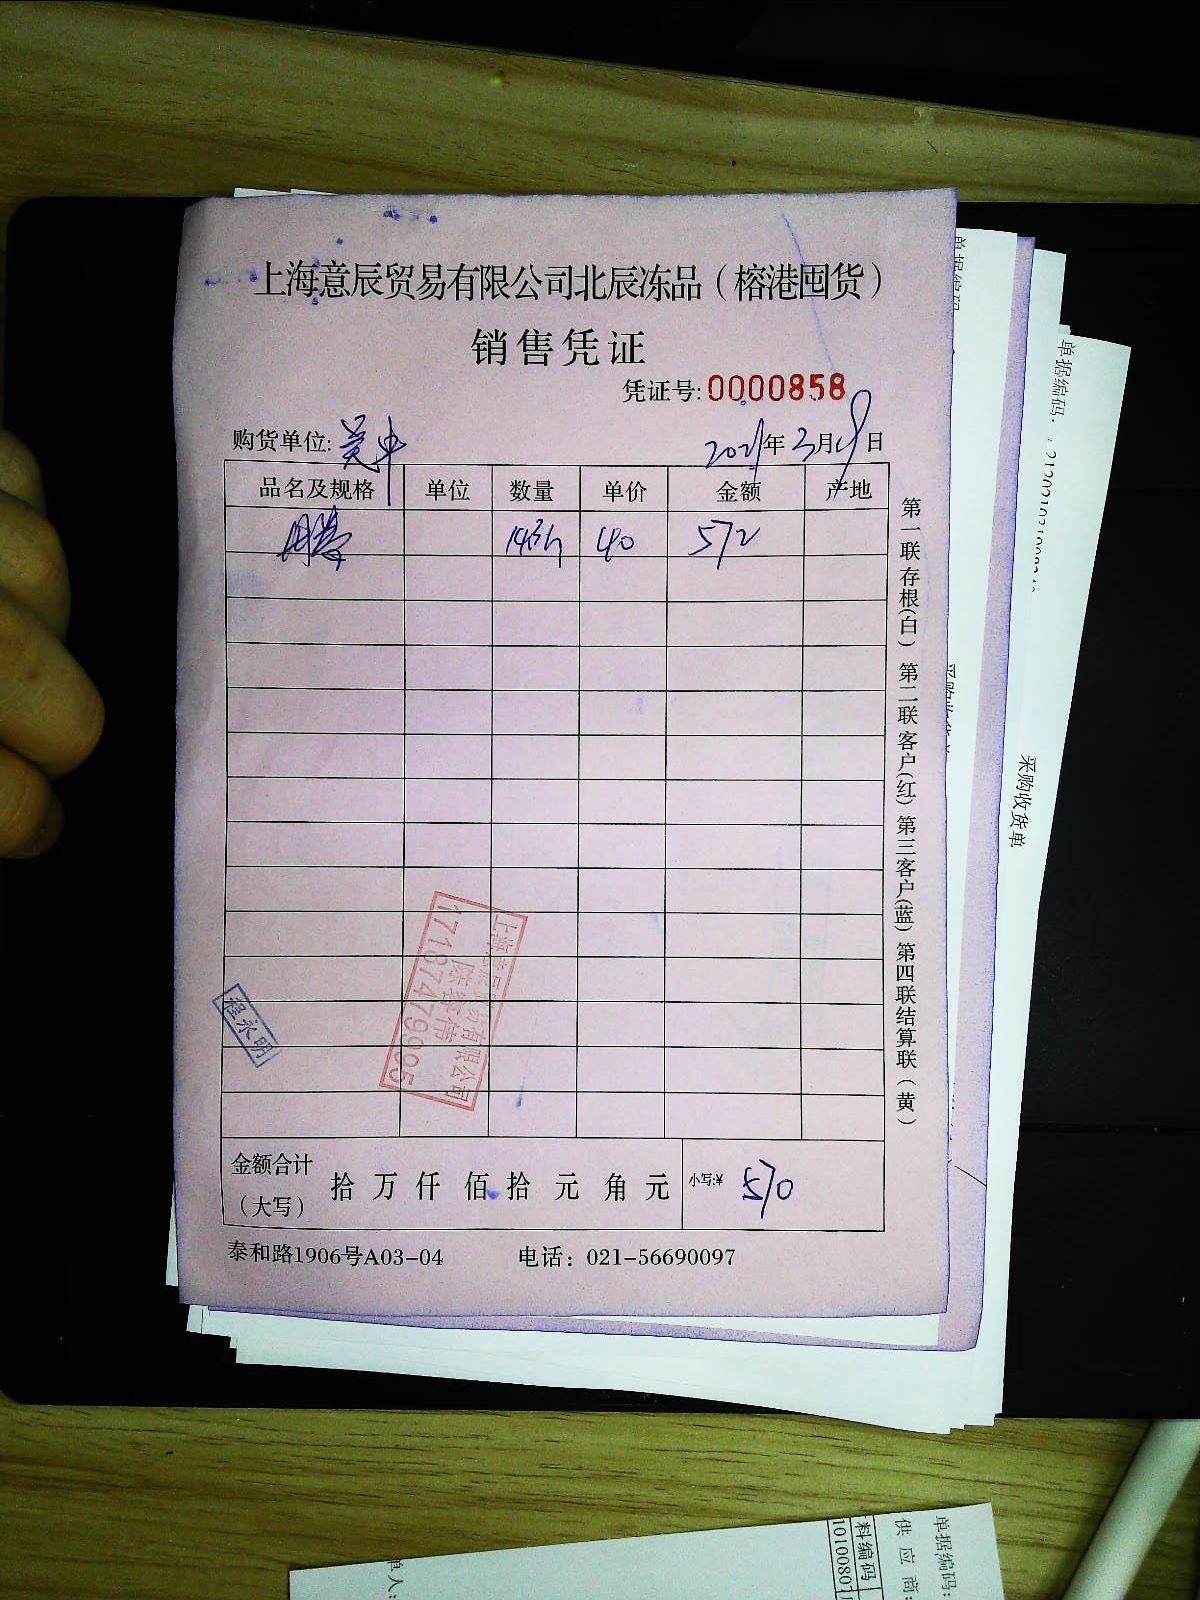 上海意辰贸易有限公司北辰冻品（榕港囤货）
销售凭证
凭证号:0000858
购货单位:吴中
2021年3月19日
品名及规格 单位 数量 单价 金额 产地
40 572
第一联存根(白) 第二联客户(红) 第三客户(蓝) 第四联结算联(黄)
上海意辰贸易有限公司
17187479995
程永明
金额合计
(大写) 拾 万 仟 佰 拾 元 角 元 小写:¥ 570
泰和路1906号A03-04 电话: 021-56690097
单据编码
单据编码:
采购收货单
单据编码:
供应商:
料编码
1010080
单人: